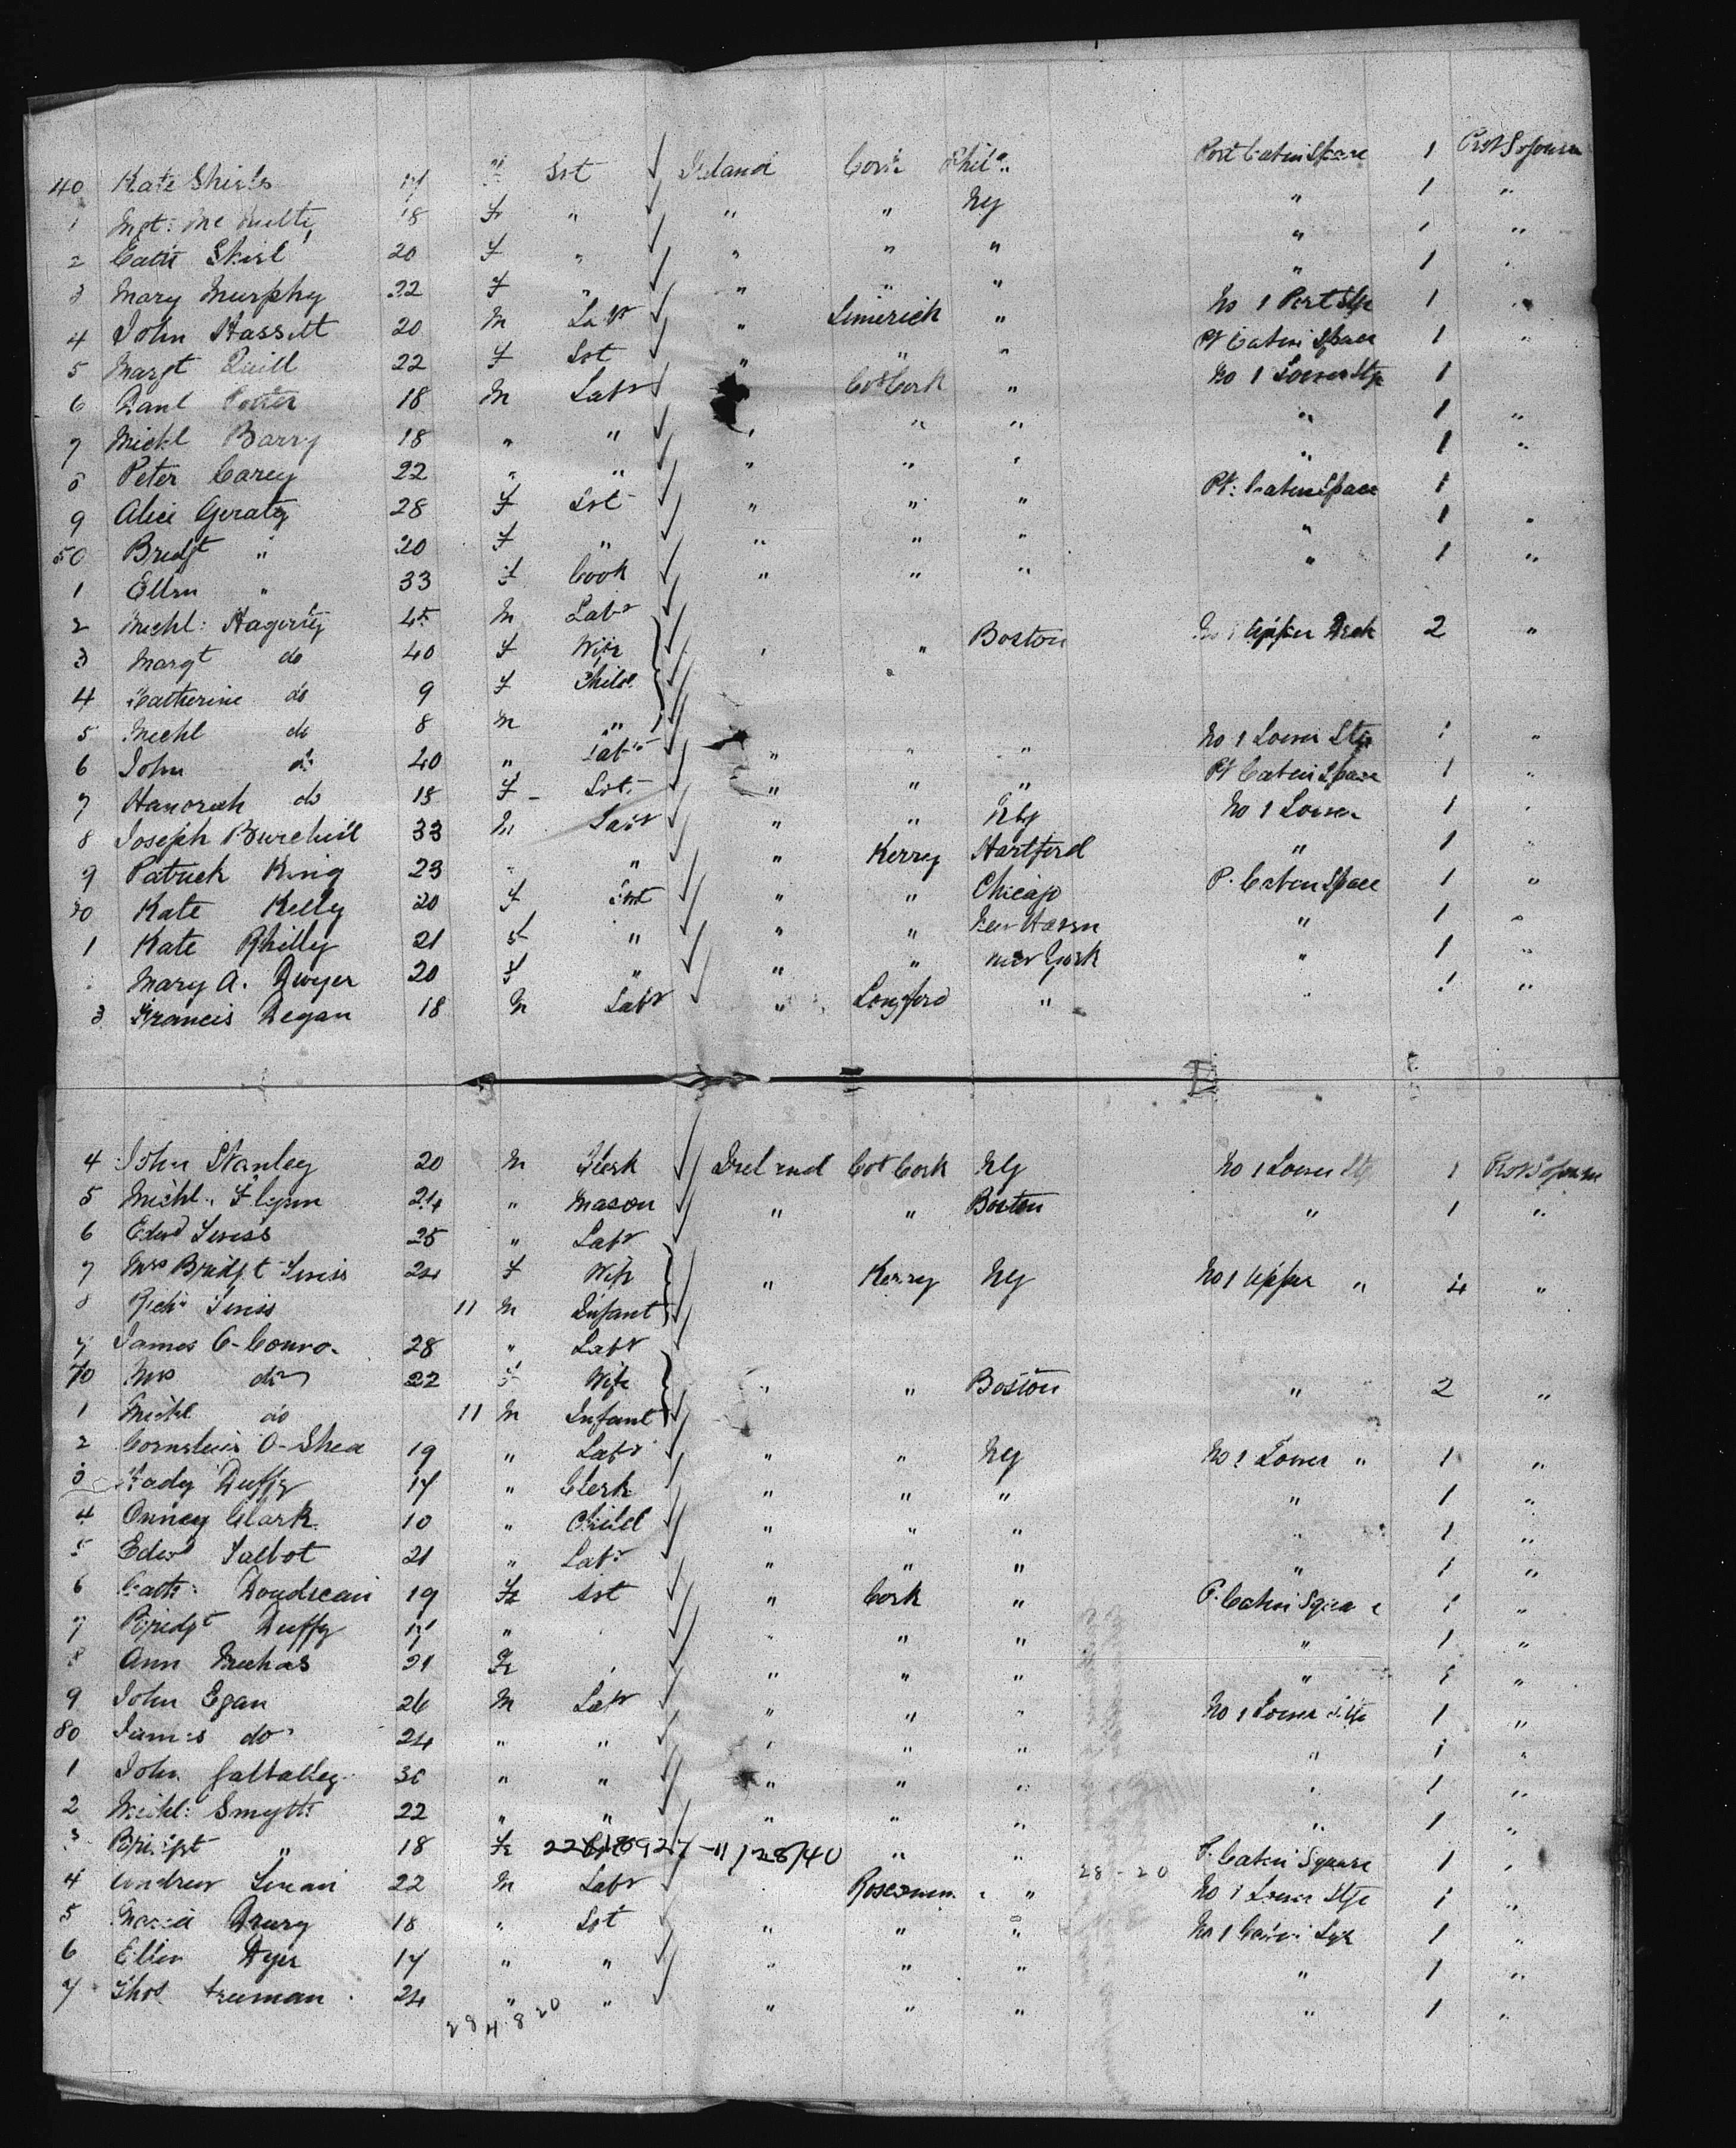 40 Kate 17 Sst Ireland Cork Phila Port Cabin Space 1
1 Mgt: Mc 18 F " " " NY " 1 "
2 Cath 20 F " " " " " 1 "
3 Mary Murphy 22 F " " " " " 1 "
4 John Hassett 20 M Labr " Limerick " No 1 Port Stge 1 "
5 Margt Quill 22 F Sst " " " Pt Cabin Space 1 "
6 Danl Cotter 18 M Labr Cot Cork " No 1 Lower Stge 1
7 Michl Barry 18 " " " " " " 1 "
8 Peter Carey 22 " " " " " " 1 "
9 Alice Geraty 28 F Sst " " " Pt: Cabin Space 1
50 Bridgt " 20 F " " " " " 1 "
1 Ellen " 33 F Cook " " " " 1 "
2 Michl: Hagerty 45 M Labr
3 Margt do 40 F Wife " " Boston No 1 Upper Deck 2 "
4 Catherine do 9 F Child "
5 Michl do 8 M "
6 John do 40 " Labr " " " No 1 Lower Stge 1 "
7 Hanorah do 18 F Sst " " " Pt Cabin Space 1 "
8 Joseph Burchill 33 M Labr " " NY No 1 Lower 1 "
9 Patrick King 23 " " " Kerry Hartford " 1 "
Kate Kelly 20 F Sst " " Chicago P. Cabin Space 1 "
1 Kate Rhilly 21 F " " " New Haven " 1 "
Mary A. Dwyer 20 F " " " New York " 1 "
3 Francis Degan 18 M Labr " Longford " 1 "
4 John Stanley 20 M Clerk Ireland Cot Cork NY No 1 Lower Stg 1
5 Michl. Flynn 24 " Mason " " Boston " 1 "
6 Edwd 25 " Labr
7 Mrs Bridgt 24 F Wife " Kerry NY No 1 Upper " 4 "
8 Richd 11 M Infant
9 James O-Conno 28 " Labr
70 Mrs do 22 F Wife " " Boston " 2 "
1 Michl do 11 M Infant
2 Cornelius O-Shea 19 " Labr " " NY No 1 Lower " 1 "
3 Duffy 17 " Clerk " " " " 1 "
4 Clark 10 " Child " " " " 1 "
5 Edwd Talbot 21 " Labr " " " " 1 "
6 Cath: 19 F Sst " Cork " P. Cabin Square 1 "
7 Bridgt Duffy 17 " " " " " 1 "
8 Ann 21 F " " " " 1 "
9 John Egan 26 M Labr " " " No 1 Lower Stge 1 "
80 James do 24 " " " " " " 1 "
1 John 30 " " " " " " 1 "
2 Michl: Smyth 22 " " " " " " 1 "
3 Bridgt " 18 F -11/28/40 " " P. Cabin Square 1 "
4 Andrew 22 M Labr Roscommn " 28-20 No 1 Lower Stge 1 "
5 Maria Drury 18 " Sst " " " No 1 Cabin 1 "
6 Ellen Dyer 17 " " " " " " 1 "
7 Thos Freeman 24 " " " " " " 1 "